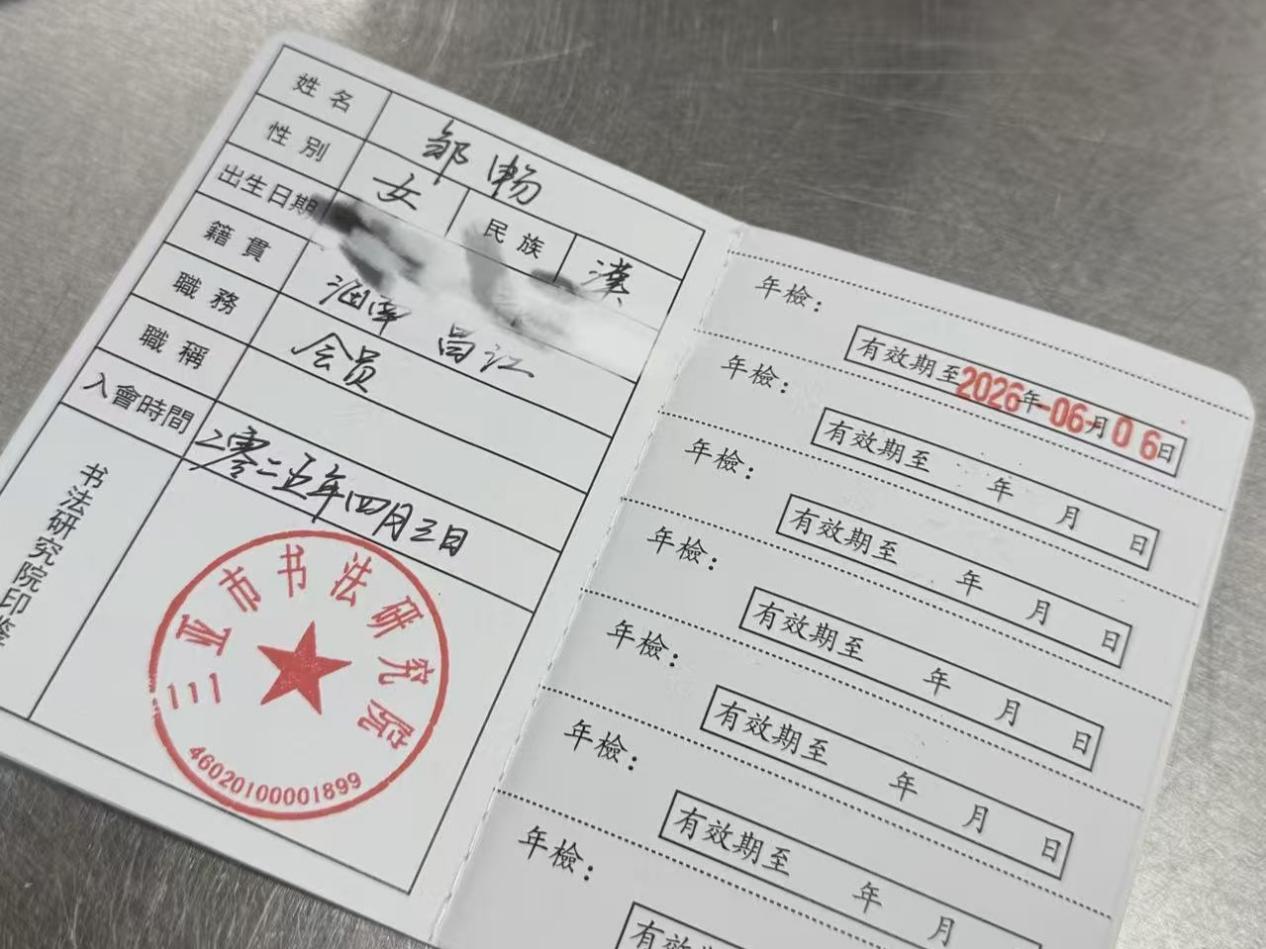 姓名 邹畅
性别 女 民族 漢
出生日期
籍貫 海南 昌江
職務 会员
職稱
入會時間 二零二五年四月三日
书法研究院印鉴
三亚市书法研究院
46020100001899
年檢：
有效期至2026年-06-月06日
年檢：
有效期至 年 月 日
年檢：
有效期至 年 月 日
年檢：
有效期至 年 月 日
年檢：
有效期至 年 月 日
年檢：
有效期至 年 月 日
年檢：
有效期至 年 月